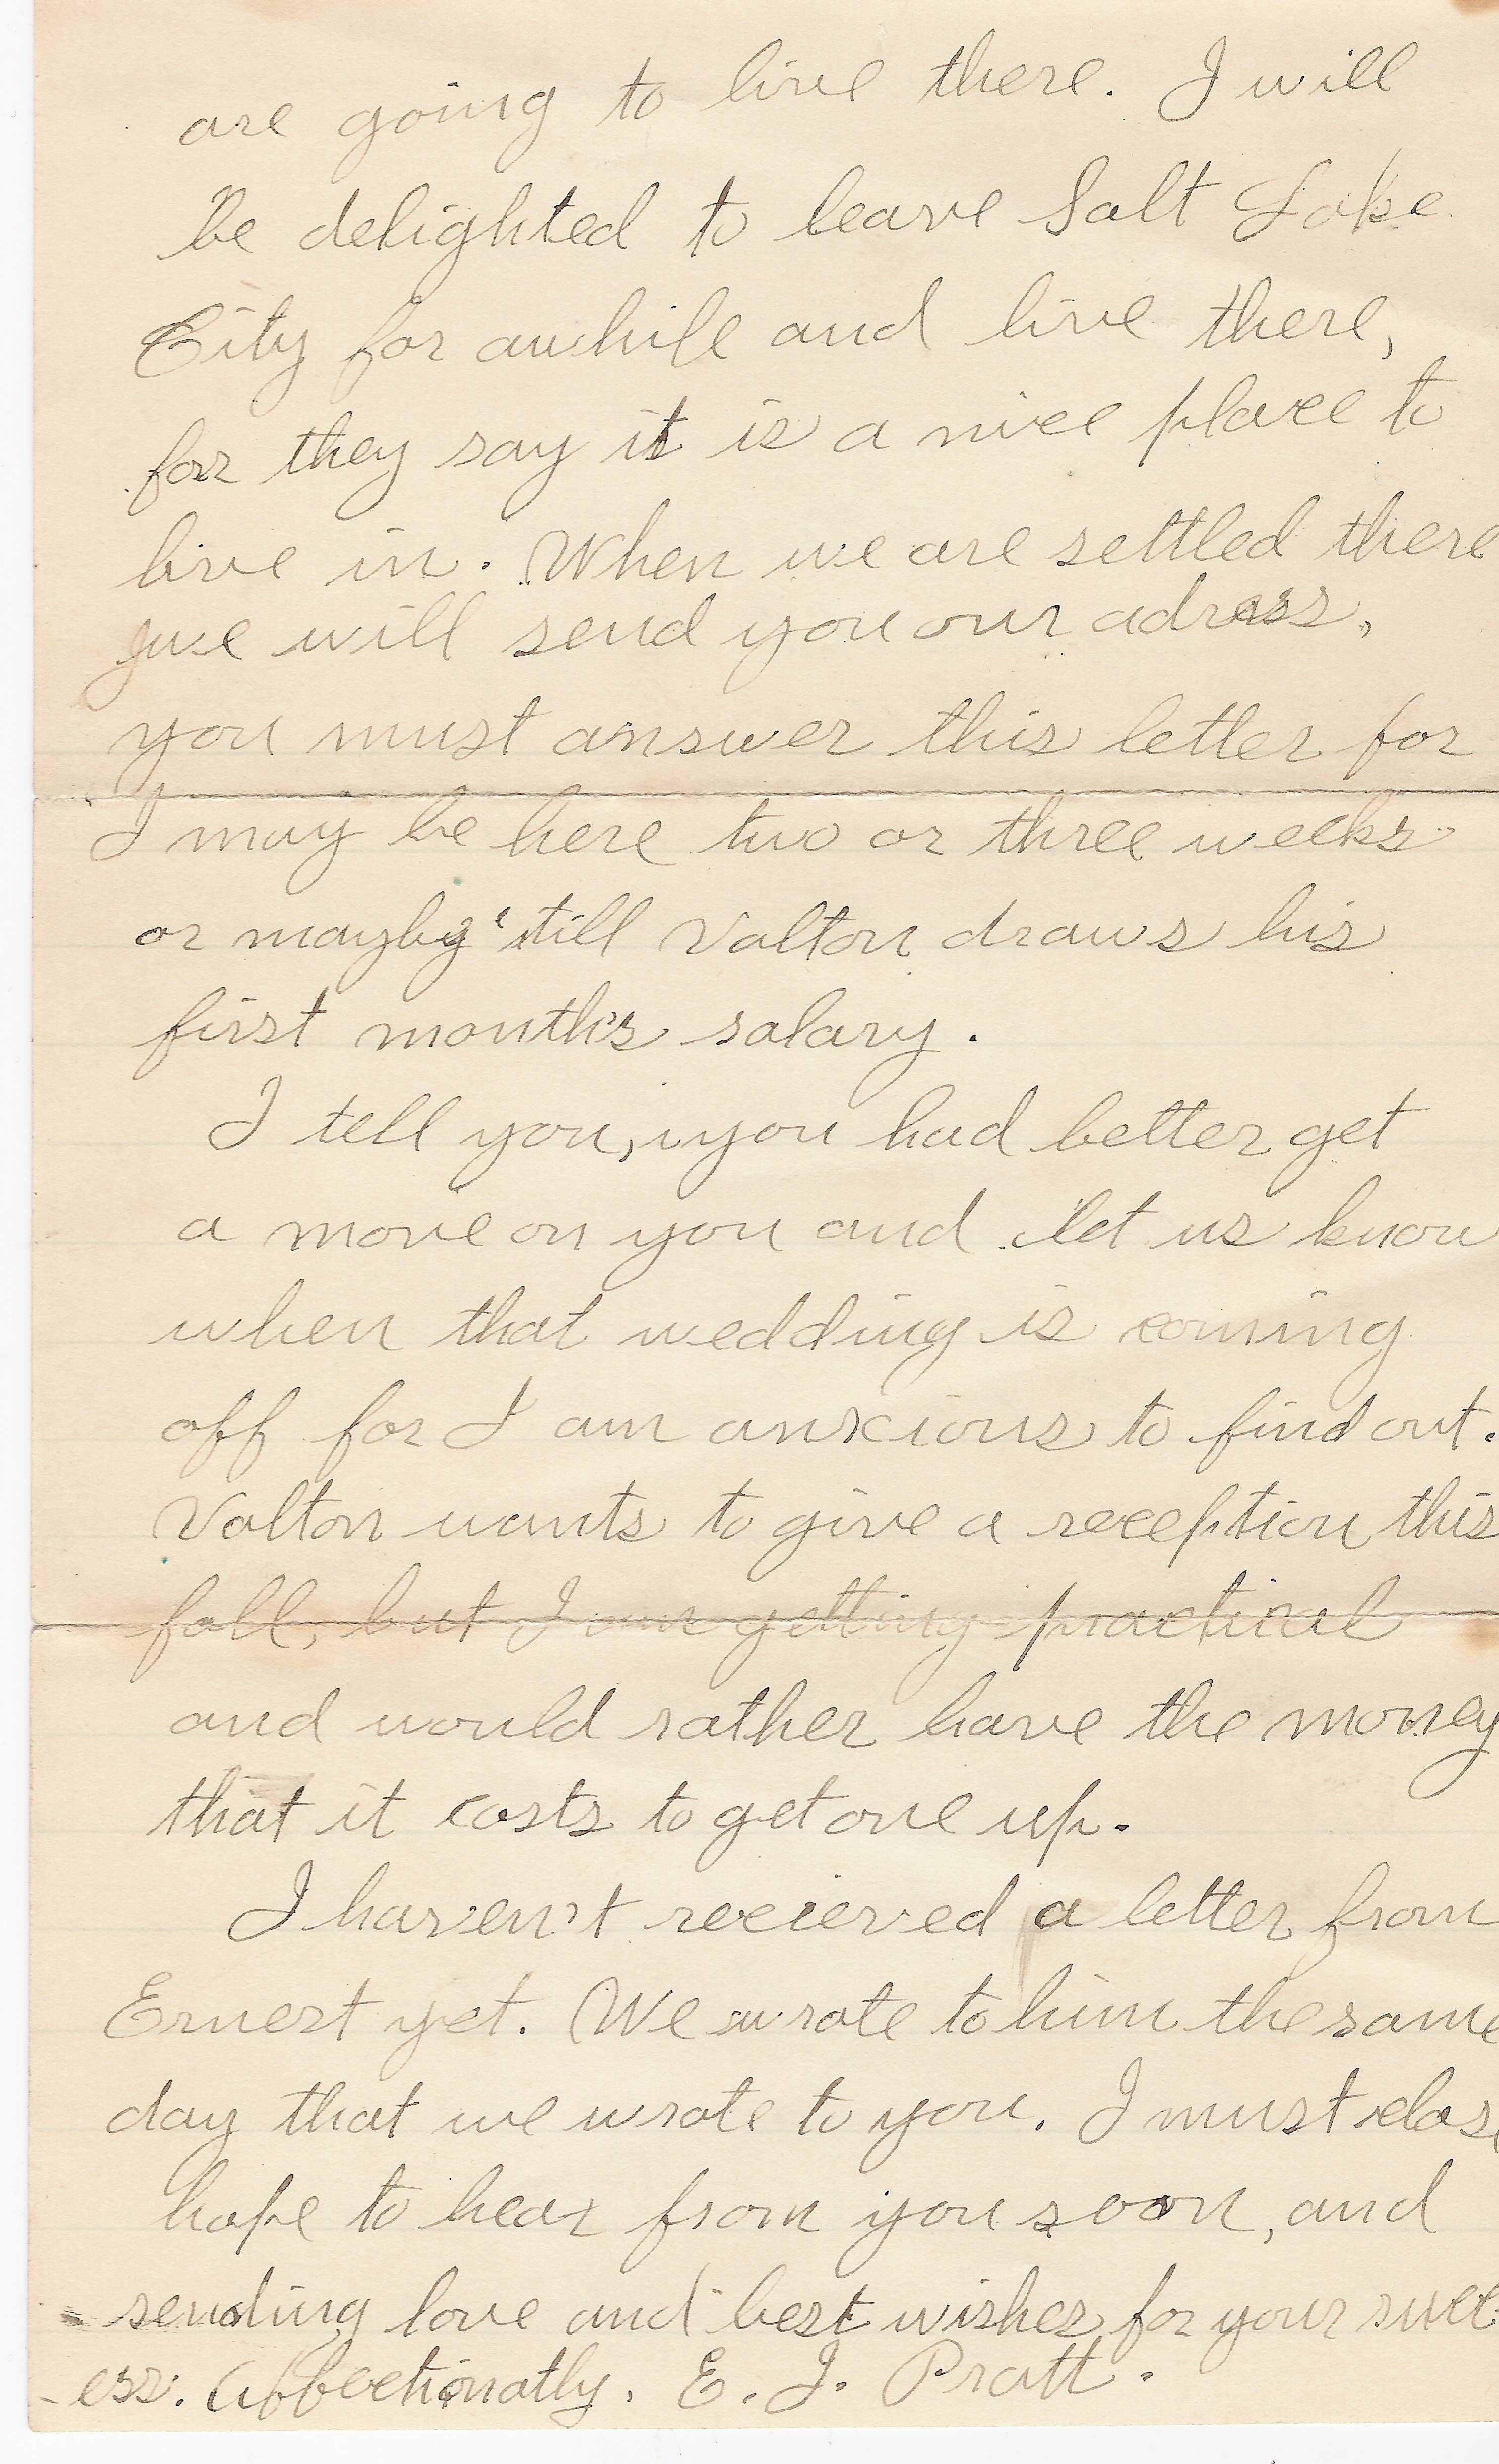 are going to live there. I will
be delighted to leave Salt Lake
City for awhile and live there,
for they say it is a nice place to
live in. When we are settled there
we will send you our adress,
you must answer this letter for
I may be here two or three weeks
or mayby 'till Valton draws his
first month's salary.
I tell you, you had better get
a move on you and let us know
when that wedding is coming
off for I am anxious to find out.
Valton wants to give a reception this
fall, but I am getting practical
and would rather have the money
that it costs to get one up.
I haven't recieved a letter from
Ernest yet. We wrote to him the same
day that we wrote to you. I must close
hope to hear from you soon, and
sending love and best wishes for your succ-
ess. Affectionatly. E. J. Pratt.